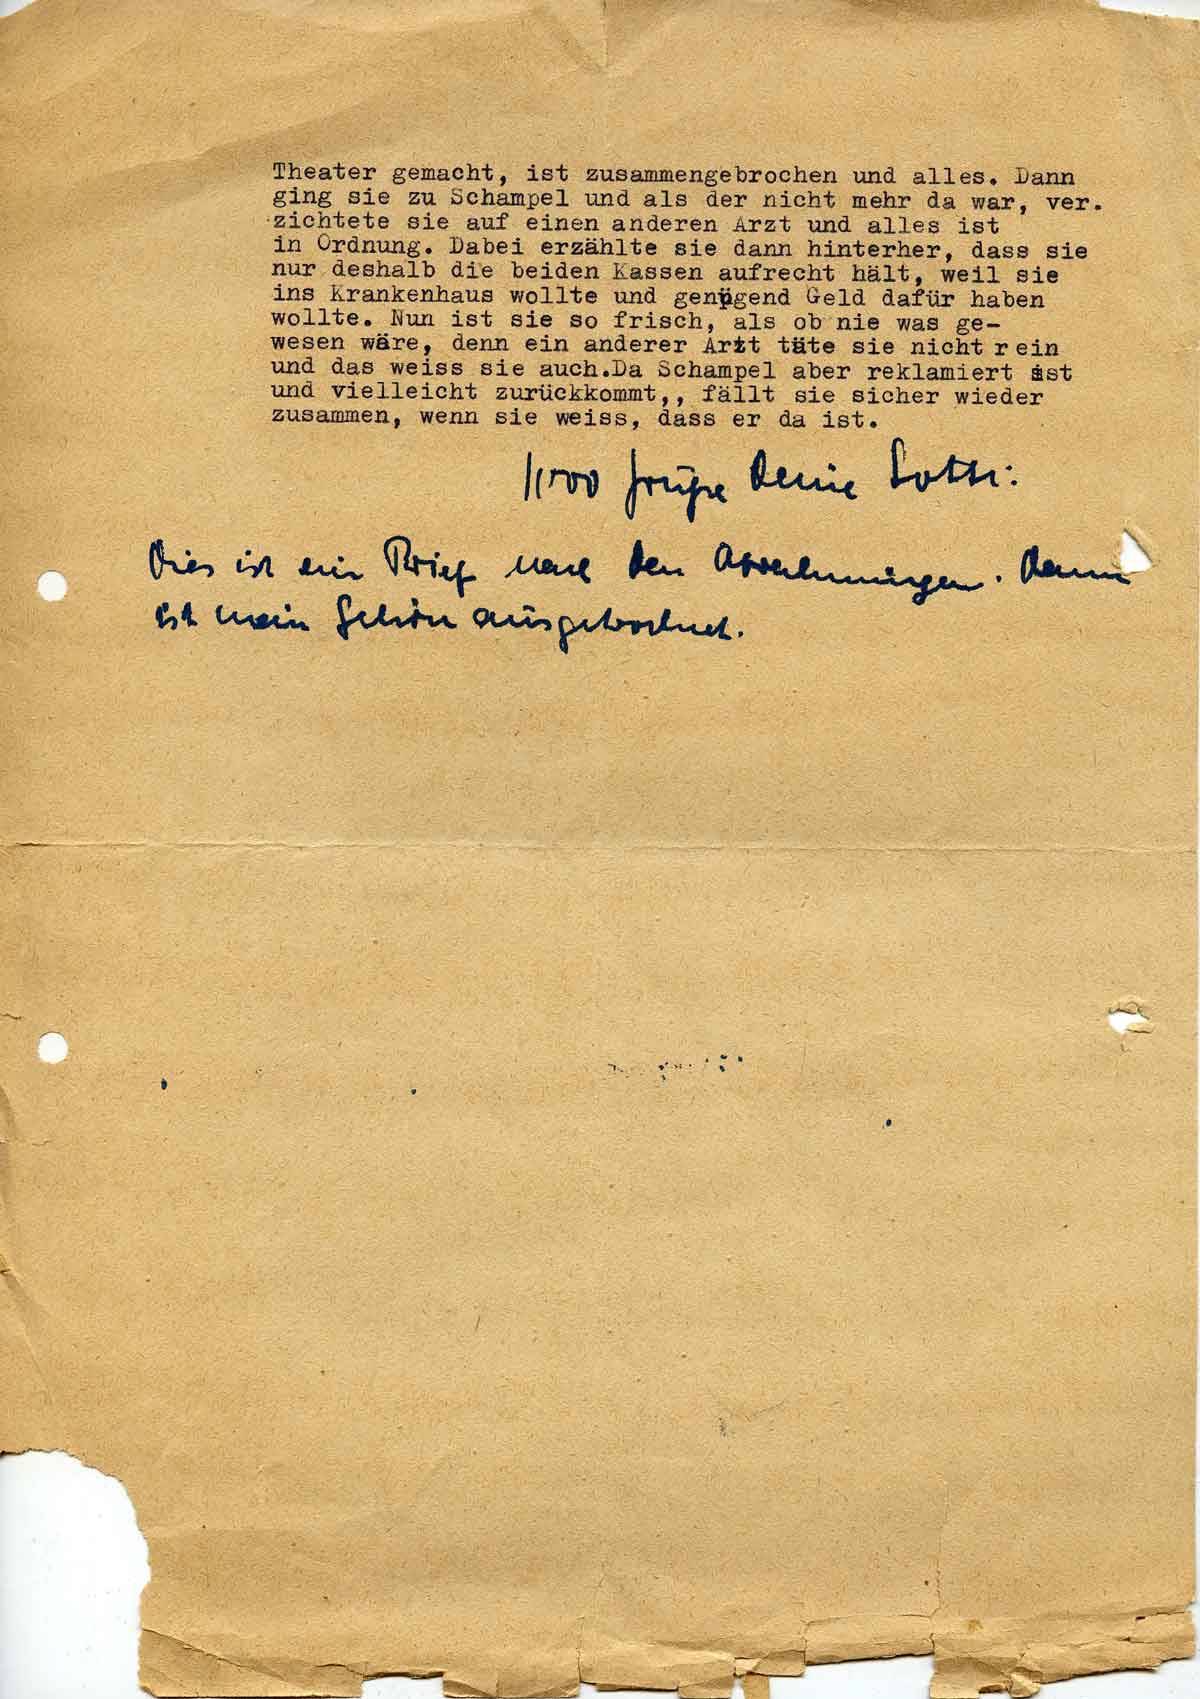 Theater gemacht, ist zusammengebrochen und alles. Dann
ging sie zu Schampel und als der nicht mehr da war, ver.
zichtete sie auf einen anderen Arzt und alles ist
in Ordnung. Dabei erzählte sie dann hinterher, dass sie
nur deshalb die beiden Kassen aufrecht hält, weil sie
ins Krankenhaus wollte und genügend Geld dafür haben
wollte. Nun ist sie so frisch, als ob nie was ge-
wesen wäre, denn ein anderer Arzt täte sie nicht rein
und das weiss sie auch.Da Schampel aber reklamiert ist
und vielleicht zurückkommt,, fällt sie sicher wieder
zusammen, wenn sie weiss, dass er da ist.
1500 Grüße Deine Lotti
Dies ist ein Brief nach den Abrechnungen. Dann
ist mein Gehirn ausgetrocknet.